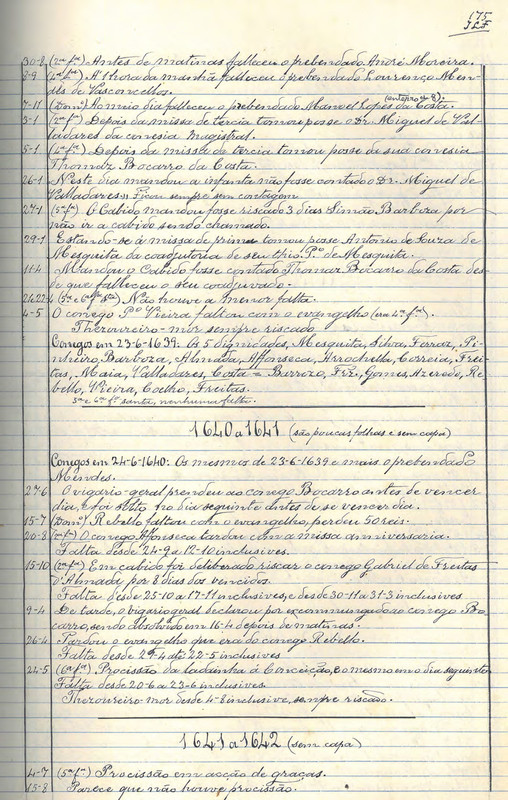 175
30-8 (2ª fª) Antes de matinas falleceu o prebendado André Moreira.
8-9 (4ª fª) Á 1 hora da manhã falleceu o prebendado Lourenço Men-
des de Vasconcellos.
7-11 (Domº) Ao meio dia falleceu o prebendado Manoel Lopes da Costa.
3-1 (2ª fª) Depois da missa de tercia tomou posse o Dr. Miguel de Val-
ladares da conesia magistral.
5-1 (4ª fª) Depois da missa de tercia tomou posse da sua conesia
Thomaz Bocarro da Costa.
26-1 Neste dia mandou a infanta não fosse contado o Dr. Miguel de
Valladares,, Ficou sempre sem contagem
27-1 (5ª fª) O Cabido mandou fosse riscado 3 dias Simão Barboza por
não ir a cabido sendo chamado.
29-1 Estando-se á missa de prima tomou posse Antonio de Souza de
Mesquita da coadjutoria de seu thio Pº de Mesquita.
11-4 Mandou o Cabido fosse contado Thomaz Bocarro da Costa des-
de que falleceu o seu coadjuvado.
21,22-4 (5ª e 6ª fª stª) Não houve a menor falta.
4-5 O conego Pº Vieira faltou com o evangelho (era 4ª fª).
Thezoureiro-mór sempre riscado.
Conegos em 23-6-1639: As 5 dignidades, Mesquita, Silva, Ferraz, Pi-
nheiro, Barboza, Almada, Affonseca, Arrochella, Correia, Frei-
tas, Maia, Valladares, Costa = Barrozo, Frz., Gomes, Azeredo, Re-
bello, Vieira, Coelho, Freitas.
5ª e 6ª fª santa, nenhuma falta.
1640 a 1641 (são poucas folhas e sem capa)
Conegos em 24-6-1640: Os mesmos de 23-6-1639 e mais o prebendado
Mendes.
27-6 O vigario-geral prendeu ao conego Bocarro antes de vencer
dia, e foi solto no dia seguinte antes de se vencer dia.
15-7 (Domº) Rebello faltou com o evangelho, perdeu 50 reis.
20-8 (2ª fª) O conego Affonseca tardou com a missa anniversaria.
Falta desde 24-9 a 12-10 inclusives.
15-10 (2ª fª) Em cabido foi deliberado riscar o conego Gabriel de Freitas
d'Almada por 8 dias dos vencidos.
Falta desde 25-10 a 17-11 inclusives, e desde 30-11 a 31-3 inclusives
9-4 De tarde, o vigario geral declarou por excommungado ao conego Bo-
carro, sendo absolvido em 16-4 depois de matinas.
26-4 Tardou o evangelho que era do conego Rebello.
Falta desde 29-4 até 22-5 inclusives
24-5 (6ª fª) Procissão da ladainha á Conceição, e o mesmo em o dia seguinte.
Falta desde 20-6 a 23-6 inclusives.
Thezoureiro-mor desde 4-8 inclusive, sempre riscado.
1641 a 1642 (sem capa)
4-7 (5ª fª) Procissão em acção de graças.
15-8 Parece que não houve procissão.